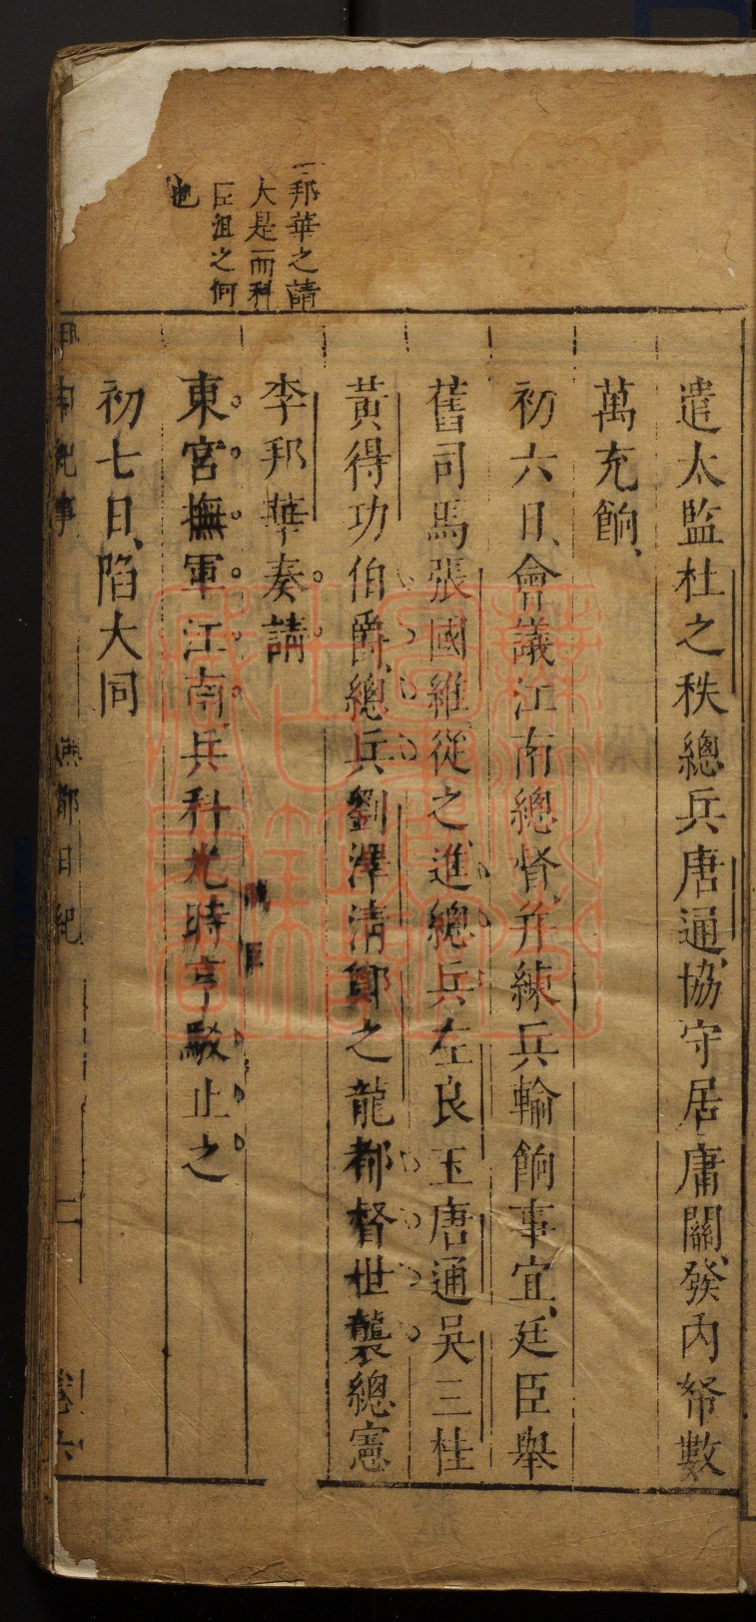 遣太監杜之秩總兵唐通、協守居庸關、發內帑數
萬充餉、
初六日、會議江南總督、并練兵輸餉事宜、廷臣舉
舊司馬張國維從之、進總兵左良玉唐通吳三桂
黃得功伯爵、總兵劉澤清鄭之龍都督世襲總憲
李邦華奏請
東宮撫軍江南、兵科光時亨駁止之
初七日、陷大同
邦華之請
大是而科
臣沮之何
也
甲申紀事
燕都日紀
二
卷六